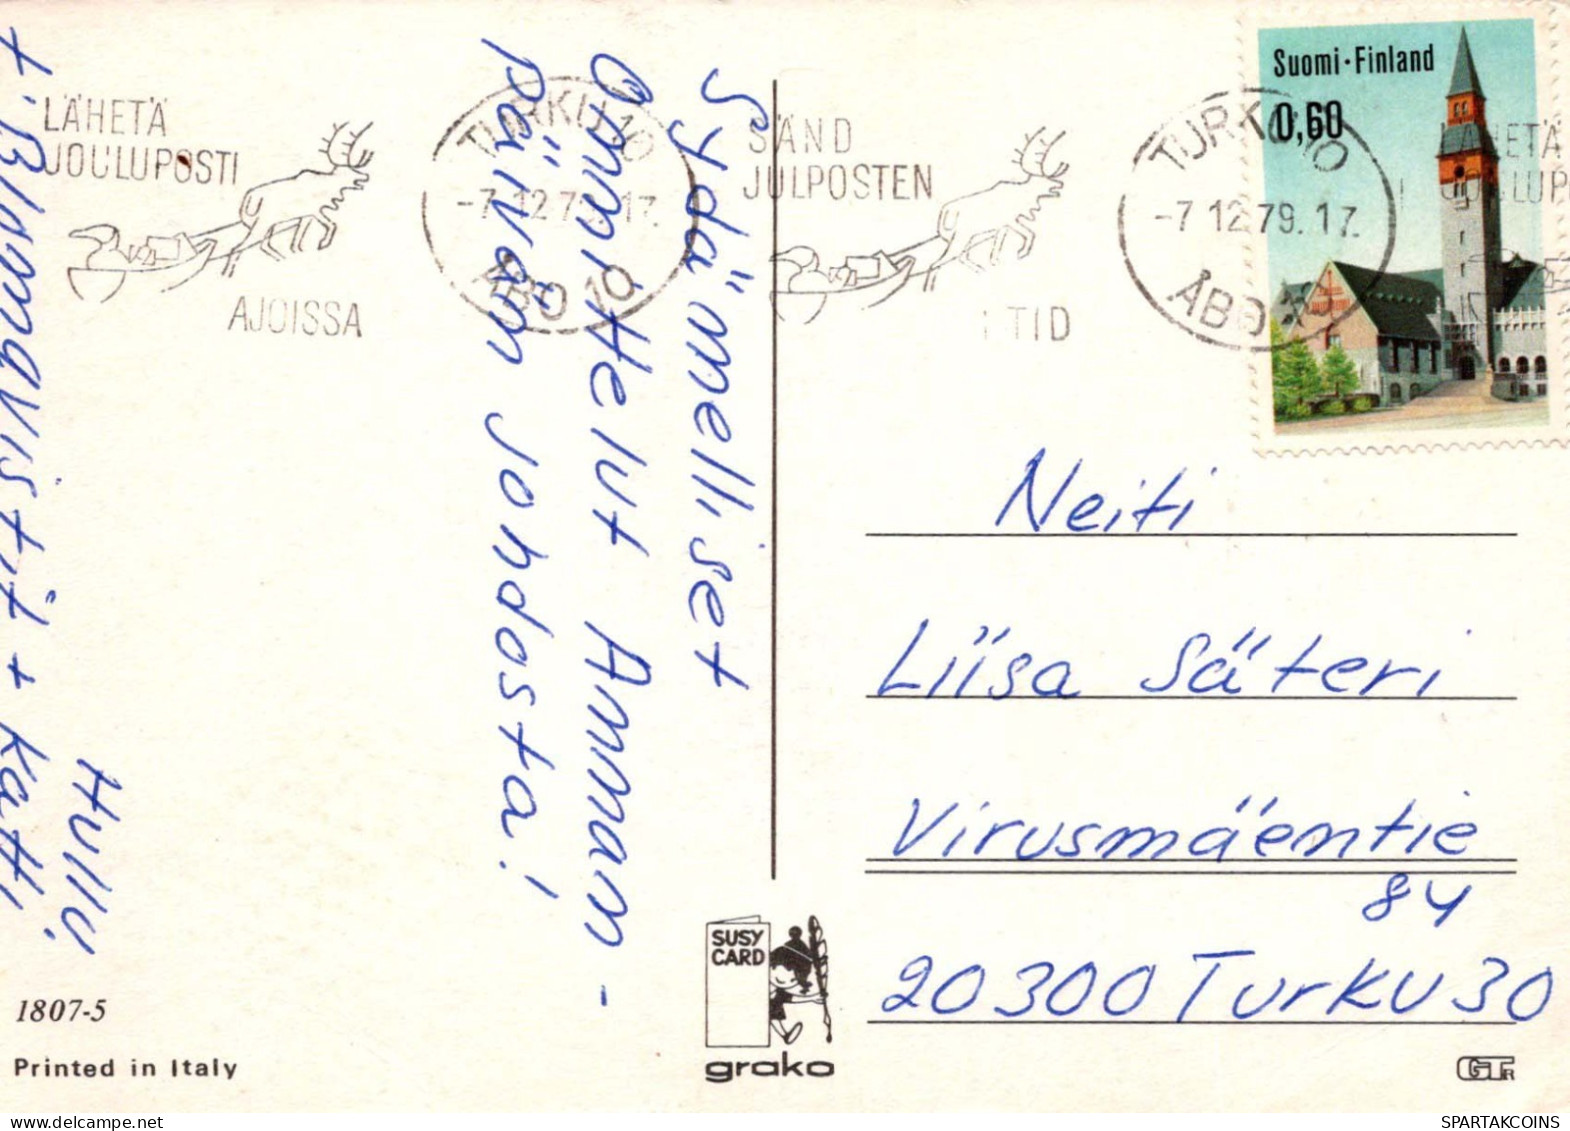 Sydämelliset
Onnittelut Annan-
päivän johdosta!
Hullu,
T. Blomqvistit + Katti
LÄHETÄ
JOULUPOSTI
AJOISSA
TURKU 10
-7.12.79.17
ÅBO 10
SÄND
JULPOSTEN
I TID
TURKU 10
-7.12.79.17
ÅBO 10
LÄHETÄ
Suomi·Finland
0,60
Neiti
Liisa Säteri
Virusmäentie
84
20300 Turku 30
SUSY
CARD
grako
1807-5
Printed in Italy
SPARTAKCOINS